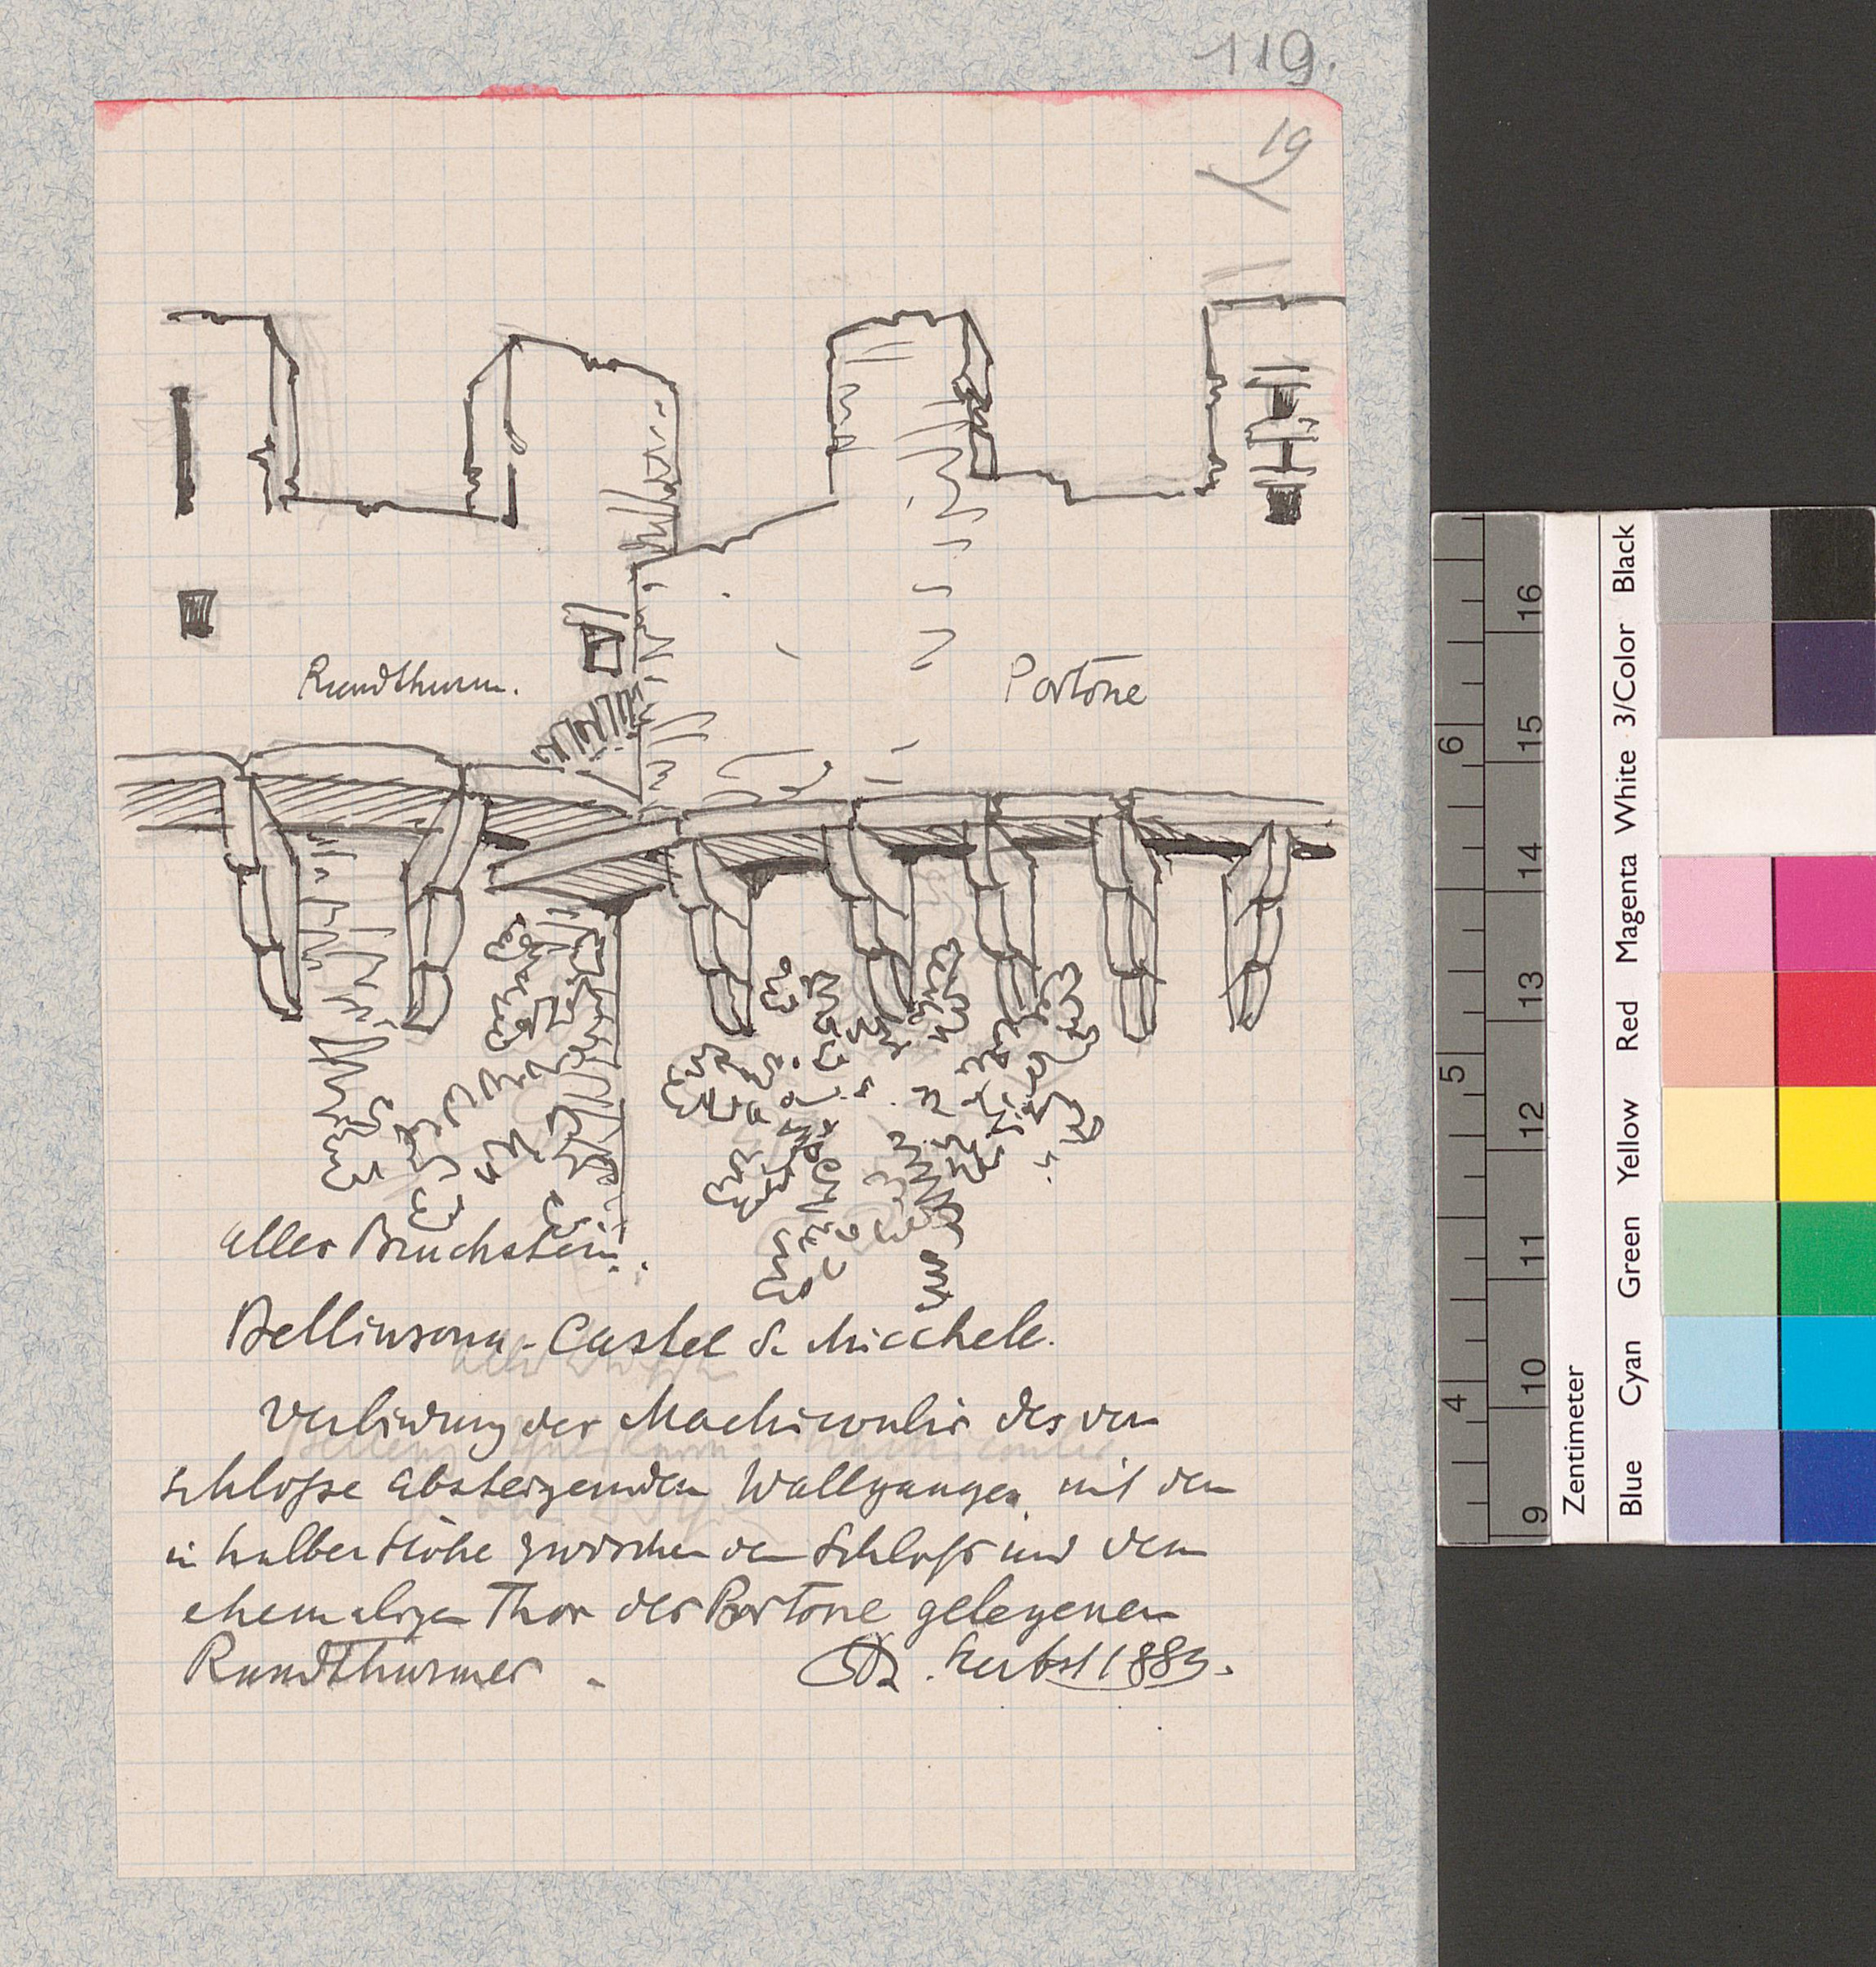 119.
19
Rundthurm.
Portone
alles Bruchstein.
Bellinzona - Castel S. Micchele.
Verbindung der Machicoulis des vom
Schlosse absteigenden Wallganges mit dem
in halber Höhe zwischen dem Schloss und dem
ehemaligen Thor des Portone gelegenen
Rundthurmes.
R. Herbst 1883.
Zentimeter
Blue Cyan Green Yellow Red Magenta White 3/Color Black
16
15
14
13
12
11
10
9
6
5
4